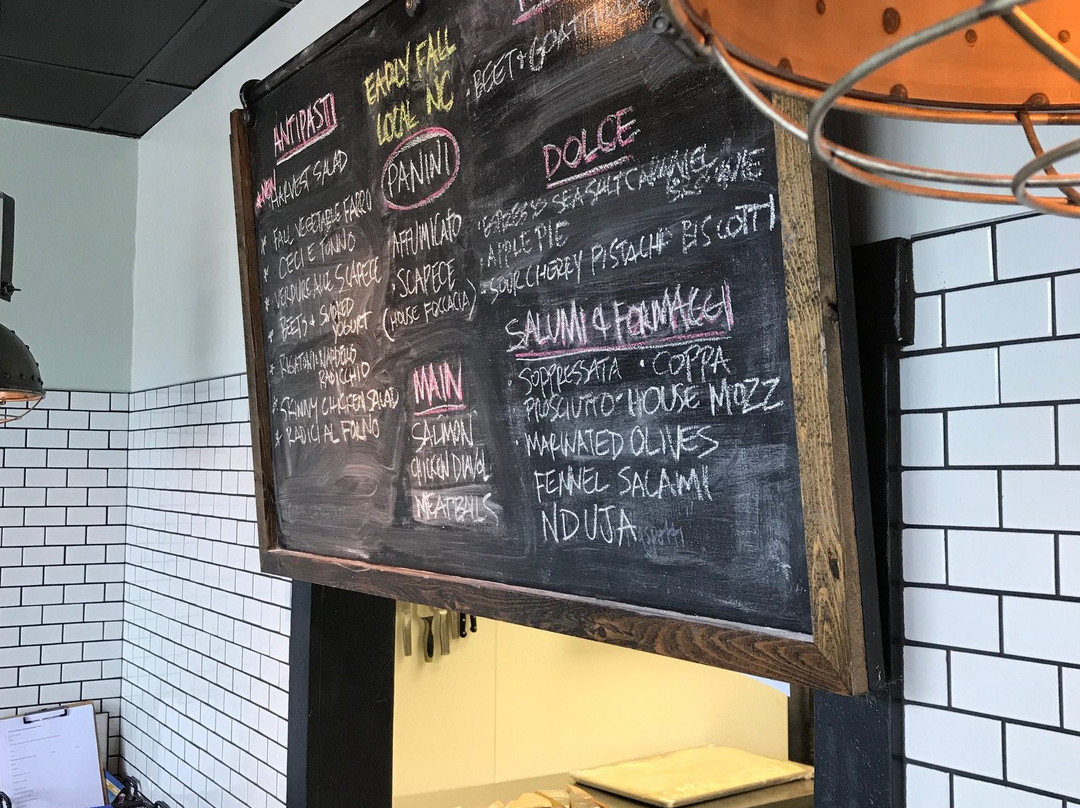 ANTIPASTI
NEW HARVEST SALAD
* FALL VEGETABLE FARRO
* CECI E TONNO
* VERDURE ALLE SCAPECE
* BEETS & SMOKED
YOGURT
* RIGATONI:
RADICCHIO
* SKINNY CHICKEN SALAD
* RADICI AL FORNO
EARLY FALL
LOCAL NC
PANINI
AFFUMICATO
SCAPECE
(HOUSE FOCCACIA)
MAIN
SALMON
CHICKEN DIAVOL
MEATBALLS
BEET & GOAT
DOLCE
ESPRESSO SEA SALT CARAMEL
APPLE PIE
SOUR CHERRY PISTACHIO BISCOTTI
SALUMI & FORMAGGI
SOPPRESSATA · COPPA
PROSCIUTTO · HOUSE MOZZ
MARINATED OLIVES
FENNEL SALAMI
NDUJA